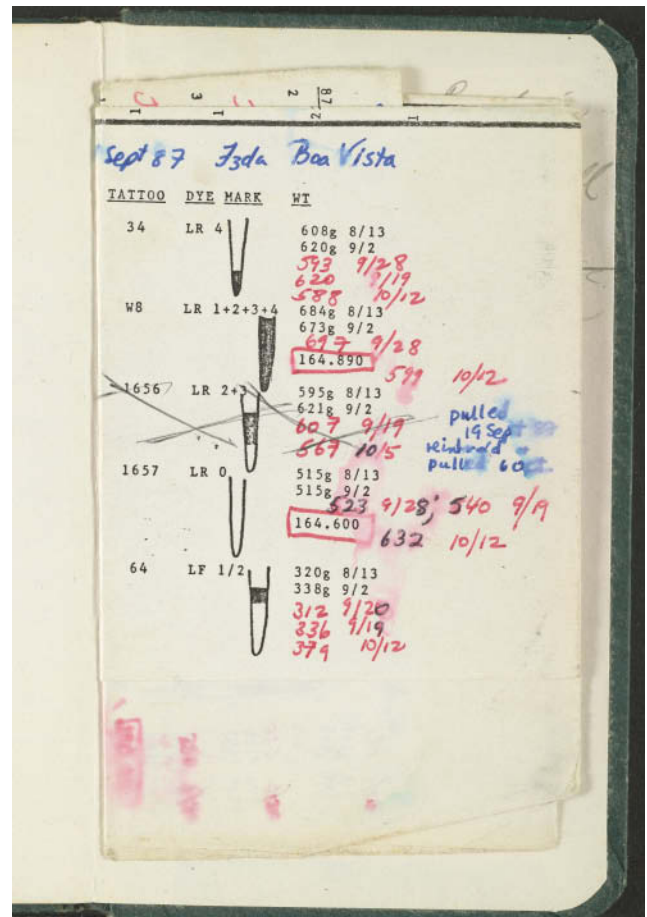 Sept 87 Fzda Boa Vista
TATTOO DYE MARK WT
34 LR 4 608g 8/13
620g 9/2
593 9/28
620 9/19
588 10/12
W8 LR 1+2+3+4 684g 8/13
673g 9/2
697 9/28
164.890
599 10/12
1656 LR 2+3 595g 8/13
621g 9/2
607 9/19
567 10/5
pulled
19 Sept
reintrod
pulled 6 Oct
1657 LR 0 515g 8/13
515g 9/2
523 9/28; 540 9/19
164.600
632 10/12
64 LF 1/2 320g 8/13
338g 9/2
312 9/20
336 9/19
379 10/12